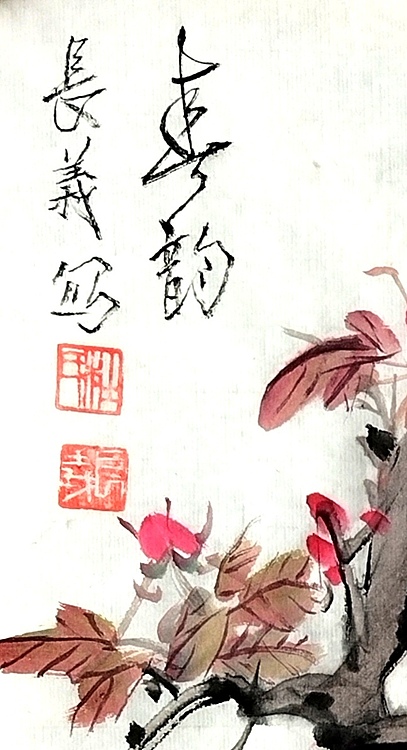 春韵
長義写